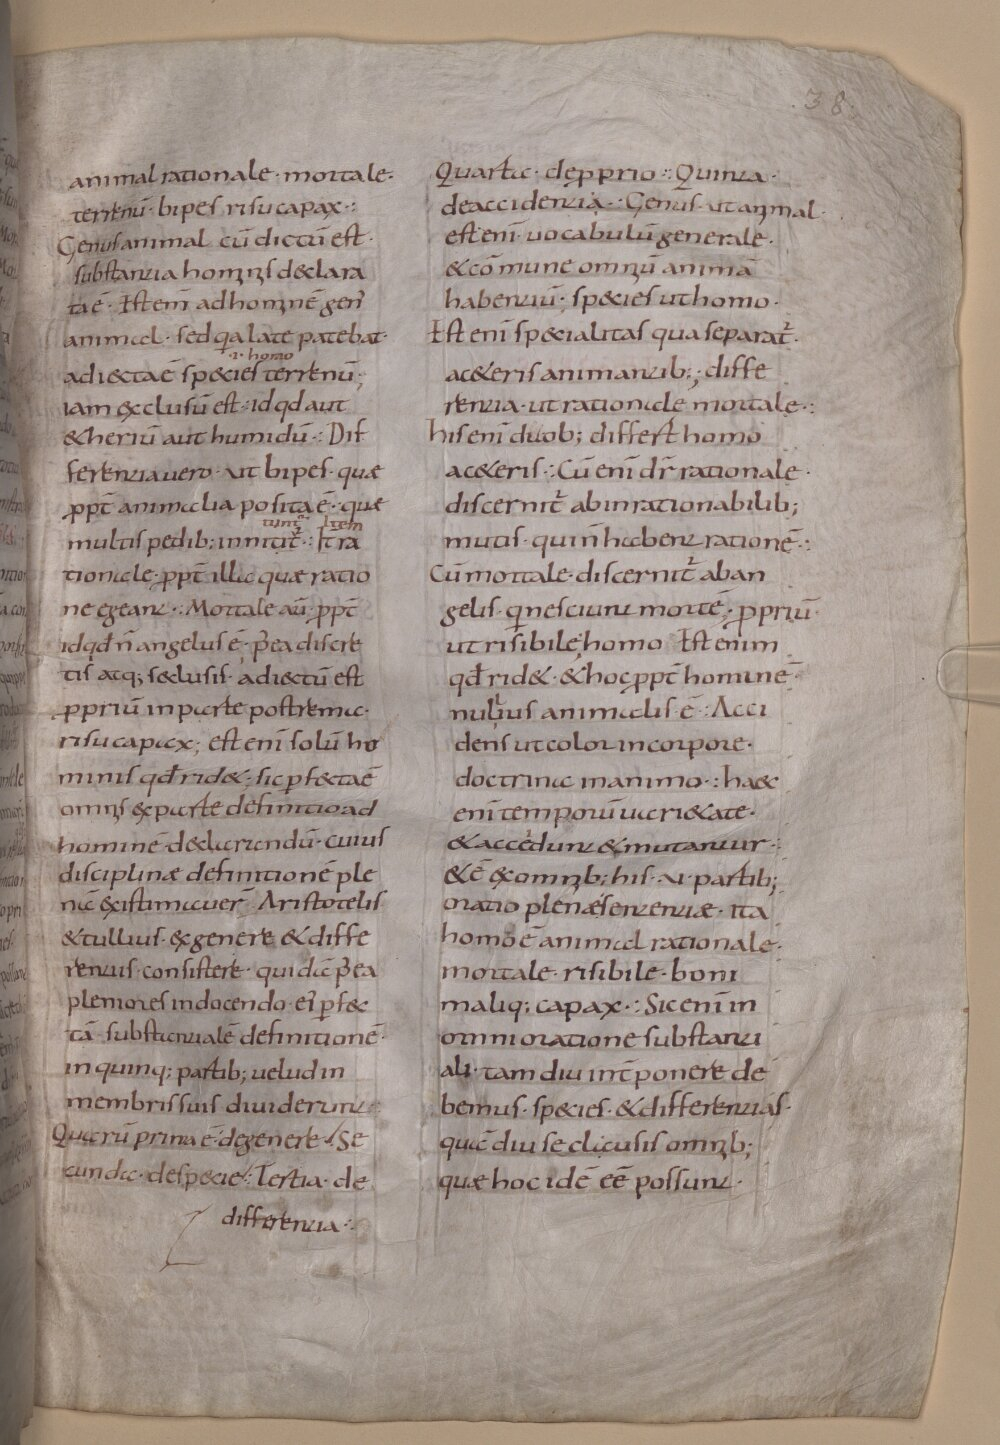 .38.
animal rationale · mortale·
terrenū· bipes risu capax·:
Genus animal cū dictū est·
substantia hominis declara
ta ē· Est enī ad hominē gen̄
animal· sed q̣a late patebat·
·i· homo
adiecta ē species terrenū;
iam exclusū est· id qd aut
&heriū aut humidū·: Dif
ferentia uero· ut bipes· quæ
ꝓpt̄ animalia posita ē· quę
Item
multis pedib; innitūt̄·: It ra
tionale· ꝓpt̄ illa quæ ratio
ne egeant·: Mortale aū ꝓpt̄
id qđ n̄ angelus ē· p̄ea discre
tis atq; seclusis· adiectū est
ꝓpriū in parte postrema·
risu capax; est enī solū ho
minis qđ ride&· sic ꝑfecta ē
omnis ex parte definitio ad
hominē declarandū· cuius
disciplinæ definitionē ple
nā existimauer̄· Aristotelis
& tullius· ex genere & diffe
rentiis consistere· quidā p̄ea
pleniores in docendo· ei' ꝑfec
tā substantialē definitionē·
in quinq; partib; uelud in
membris suis diuiderunt·
Quarū prima ē· de genere· Se
cunda· de specie·: Tertia· de
differentia·:
Quarta· de ꝓprio·: Quinta·
de accidentia·: Genus· ut animal·
est enī· uocabulū generale·
& cōmune omniū animā
habentiū; species ut homo·
Est enī specialitas qua separat̄·
a c&eris animantib;·; diffe
rentia· ut rationale mortale·:
his enī duob; differt homo
a c&eris·: Cū enī dr̄ rationale·
discernit̄ ab inrationabilib;
mutis· qui n̄ habent rationē·:
Cū mortale· discernit̄ ab an
gelis· qi nesciunt mortē; ꝓpriū·
ut risibile· homo Est enim
qđ ride&· & hoc ꝓpt̄ hominē
nullius animalis· ē·: Acci
dens ut color in corpore·
doctrina in animo·: haec
enī temporū uari&ate·
& accedunt & mutantur·:
& ē ex omnib; his· u· partib;
oratio plenæ sententiæ· ita
homo ē animal rationale·
mortale· risibile· boni
maliq; capax·: Sic enī in
omni oratione substanti
ali· tam diu int̄ponere de
bemus· species· & differentias·
quā diu seclausis omnib;
quæ hoc idē eē possunt·